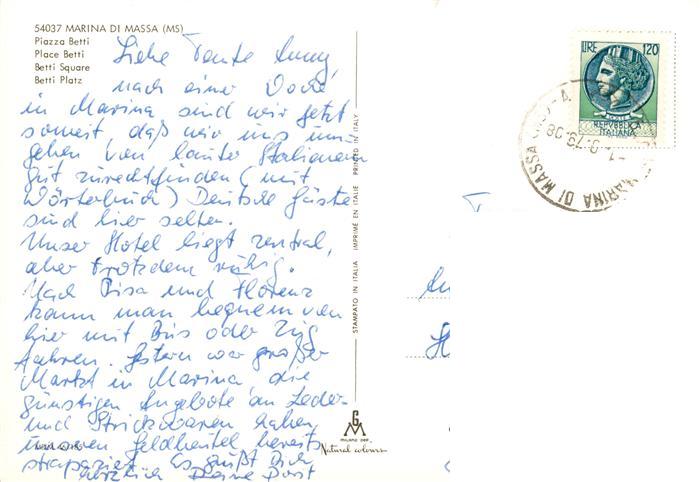 54037 MARINA DI MASSA (MS)
Piazza Betti
Place Betti
Betti Square
Betti Platz
Liebe Tante Anny,
nach einer Woche
in Marina sind wir jetzt
soweit, daß wir uns um-
geben von lauter Italienern
gut zurechtfinden (mit
Wörterbuch) Deutsche Gäste
sind hier selten.
Unser Hotel liegt zentral,
aber trotzdem ruhig.
Nach Pisa und Florenz
kann man bequem von
hier mit Bus oder Zug
fahren. Gestern war großer
Markt in Marina, die
günstigen Angebote an Leder-
und Strickwaren haben
unseren Geldbeutel bereits
strapaziert. Es grüßt Dich
herzlich Deine
STAMPATO IN ITALIA IMPRIME EN ITALIE PRINTED IN ITALY
G
M
MILANO DEP.
Natural colours
LIRE 120
REPUBBLICA
ITALIANA
MARINA DI MASSA